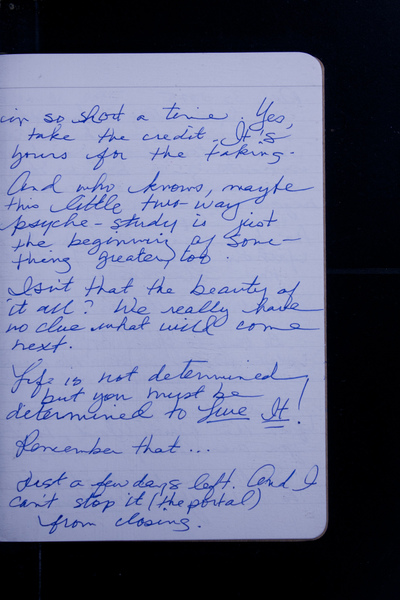 in so short a time. Yes,
take the credit. It's
yours for the taking.
And who knows, maybe
this little two-way
psyche-study is just
the beginning of some-
thing greater, too.
Isn't that the beauty of
it all? We really have
no clue what will come
next.
Life is not determined,
but you must be
determined to Live It!
Remember that...
Just a few days left. And I
can't stop it (the portal)
from closing.